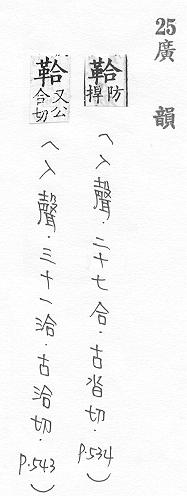 25廣韻
鞈防捍
(入聲.二十七合.古沓切.P.534)
鞈又公合切
(入聲.三十一洽.古洽切.P.543)